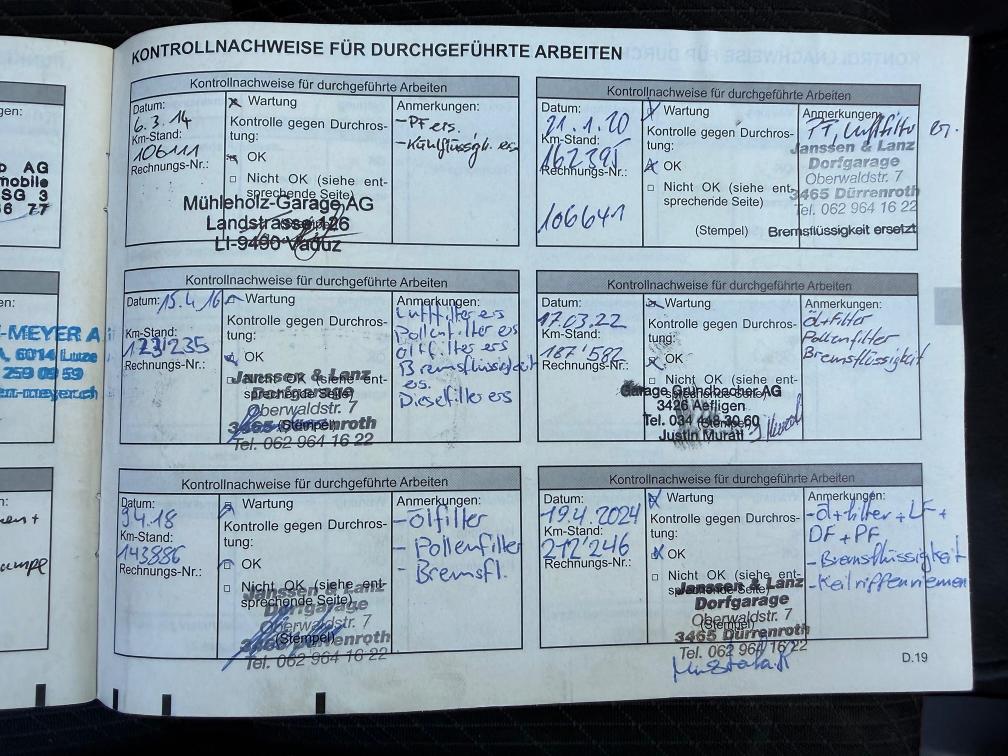 KONTROLLNACHWEISE FÜR DURCHGEFÜHRTE ARBEITEN
Kontrollnachweise für durchgeführte Arbeiten
Datum:
6.3.14
Km-Stand:
106111
Rechnungs-Nr.:
Wartung
Kontrolle gegen Durchros-
tung:
OK
Nicht OK (siehe ent-
sprechende Seite)
(Stempel)
Anmerkungen:
- PF ers.
- Kühlflüssigk. ers
Mühleholz-Garage AG
Landstrasse 126
LI-9490 Vaduz
Kontrollnachweise für durchgeführte Arbeiten
Datum: 15.4.16
Km-Stand:
123'235
Rechnungs-Nr.:
Wartung
Kontrolle gegen Durchros-
tung:
OK
Nicht OK (siehe ent-
sprechende Seite)
(Stempel)
Anmerkungen:
Luftfilter ers
Pollenfilter ers
Ölfilter ers
Bremsflüssigkeit
es.
Dieselfilter ers
Janssen & Lanz
Dorfgarage
Oberwaldstr. 7
3465 Dürrenroth
Tel. 062 964 16 22
Kontrollnachweise für durchgeführte Arbeiten
Datum:
9.4.18
Km-Stand:
143886
Rechnungs-Nr.:
Wartung
Kontrolle gegen Durchros-
tung:
OK
Nicht OK (siehe ent-
sprechende Seite)
(Stempel)
Anmerkungen:
- Ölfilter
- Pollenfilter
- Bremsfl.
Janssen & Lanz
Dorfgarage
Oberwaldstr. 7
3465 Dürrenroth
Tel. 062 964 16 22
Kontrollnachweise für durchgeführte Arbeiten
Datum:
21.1.20
Km-Stand:
162395
Rechnungs-Nr.:
106641
Wartung
Kontrolle gegen Durchros-
tung:
OK
Nicht OK (siehe ent-
sprechende Seite)
(Stempel)
Anmerkungen:
Luftfilter er.
Janssen & Lanz
Dorfgarage
Oberwaldstr. 7
3465 Dürrenroth
Tel. 062 964 16 22
Bremsflüssigkeit ersetzt
Kontrollnachweise für durchgeführte Arbeiten
Datum:
17.03.22
Km-Stand:
187'582
Rechnungs-Nr.:
Wartung
Kontrolle gegen Durchros-
tung:
OK
Nicht OK (siehe ent-
sprechende Seite)
(Stempel)
Anmerkungen:
Öl+Filter
Pollenfilter
Bremsflüssigkeit
Garage Grundbacher AG
3426 Aefligen
Tel. 034 445 30 60
Justin Murati
Kontrollnachweise für durchgeführte Arbeiten
Datum:
19.4.2024
Km-Stand:
212'246
Rechnungs-Nr.:
Wartung
Kontrolle gegen Durchros-
tung:
OK
Nicht OK (siehe ent-
sprechende Seite)
(Stempel)
Anmerkungen:
- Öl+Filter + LF +
DF + PF
- Bremsflüssigkeit
- Keilriffenriemen
Janssen & Lanz
Dorfgarage
Oberwaldstr. 7
3465 Dürrenroth
Tel. 062 964 16 22
D.19